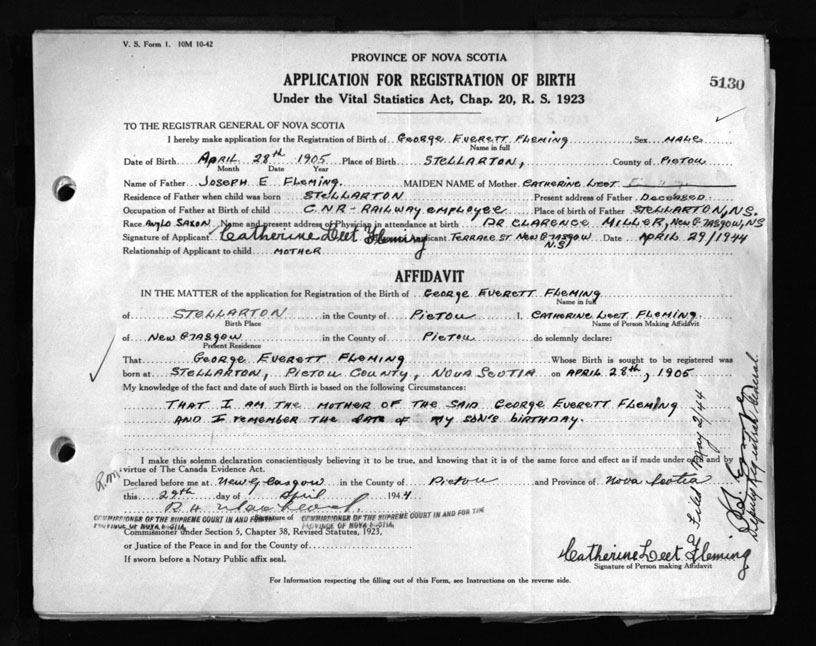 V. S. Form 1. 10M 10-42
PROVINCE OF NOVA SCOTIA
APPLICATION FOR REGISTRATION OF BIRTH
5130
Under the Vital Statistics Act, Chap. 20, R. S. 1923
TO THE REGISTRAR GENERAL OF NOVA SCOTIA
I hereby make application for the Registration of Birth of George Everett Fleming, Sex Male
Name in full
Date of Birth April 28th 1905 Place of Birth Stellarton, County of Pictou
Month Date Year
Name of Father Joseph E Fleming. MAIDEN NAME of Mother Catherine Leet
Residence of Father when child was born Stellarton Present address of Father Deceased
Occupation of Father at Birth of child C.N.R - Railway employee Place of birth of Father Stellarton, N.S.
Race Anglo Saxon Name and present address of Physician in attendance at birth Dr Clarence Miller, New Glasgow, NS
Signature of Applicant Catherine Leet Fleming Terrace St New Glasgow N.S. Date April 29/1944
Relationship of Applicant to child mother
AFFIDAVIT
IN THE MATTER of the application for Registration of the Birth of George Everett Fleming
Name in full
of Stellarton in the County of Pictou I, Catherine Leet Fleming
Birth Place Name of Person Making Affidavit
of New Glasgow in the County of Pictou do solemnly declare:
Present Residence
That George Everett Fleming Whose Birth is sought to be registered was
born at Stellarton, Pictou County, Nova Scotia on April 28th, 1905
My knowledge of the fact and date of such Birth is based on the following Circumstances:
That I am the mother of the said George Everett Fleming
and I remember the date of my son's birthday.
I make this solemn declaration conscientiously believing it to be true, and knowing that it is of the same force and effect as if made under oath and by
virtue of The Canada Evidence Act.
Declared before me at New Glasgow in the County of Pictou and Province of Nova Scotia
this 29th day of April 1944
Signature of
COMMISSIONER OF THE SUPREME COURT IN AND FOR THE PROVINCE OF NOVA SCOTIA
COMMISSIONER OF THE SUPREME COURT IN AND FOR THE
PROVINCE OF NOVA SCOTIA
Commissioner under Section 5, Chapter 38, Revised Statutes, 1923,
or Justice of the Peace in and for the County of
If sworn before a Notary Public affix seal.
Catherine Leet Fleming
Signature of Person making Affidavit
For Information respecting the filling out of this Form, see Instructions on the reverse side.
Filed May 2/44
Deputy Registrar General